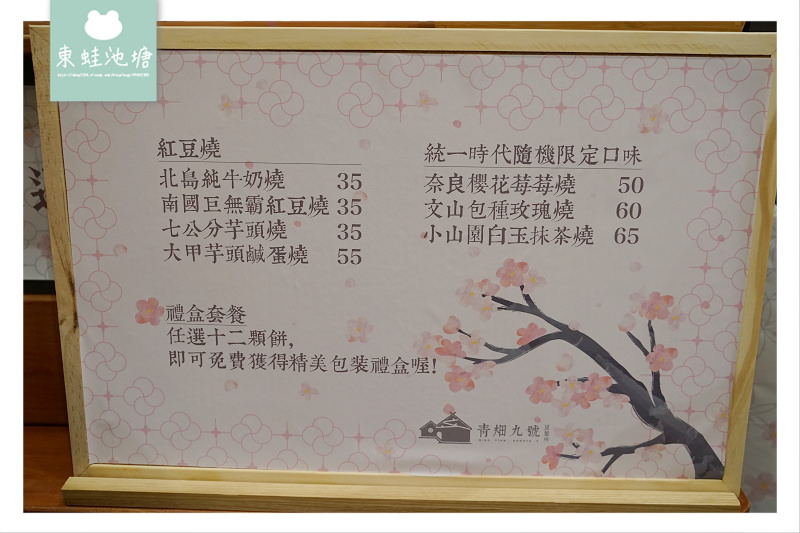 東蛙池塘
紅豆燒
北島純牛奶燒 35
南國巨無霸紅豆燒 35
七公分芋頭燒 35
大甲芋頭鹹蛋燒 55
統一時代隨機限定口味
奈良櫻花莓莓燒 50
文山包種玫瑰燒 60
小山園白玉抹茶燒 65
禮盒套餐
任選十二顆餅,
即可免費獲得精美包裝禮盒喔!
青畑九號